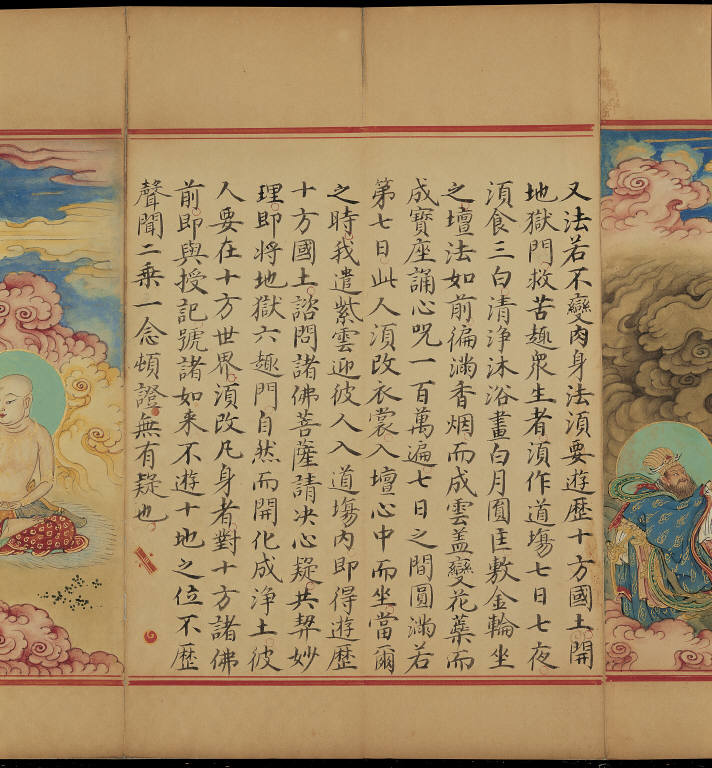 又法若不變肉身法須要遊歷十方國土開
地獄門救苦趣衆生者須作道場七日七夜
須食三白清淨沐浴畫白月圓匡敷金輪坐
之壇法如前徧滿香烟而成雲盖變花蘂而
成寶座誦心呪一百萬遍七日之間圓滿若
第七日此人須改衣裳入壇心中而坐當爾
之時我遣紫雲迎彼人入道塲内即得遊歷
十方國土諮問諸佛菩薩請决心疑共契妙
理即將地獄六趣門自然而開化成淨土彼
人要在十方世界須改凡身者對十方諸佛
前即與授記號諸如来不遊十地之位不歷
聲聞二乗一念頓證無有疑也